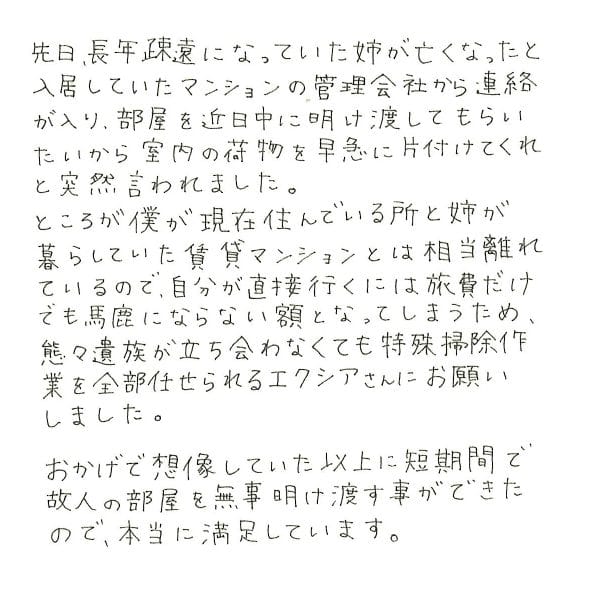 先日、長年疎遠になっていた姉が亡くなったと
入居していたマンションの管理会社から連絡
が入り、部屋を近日中に明け渡してもらい
たいから室内の荷物を早急に片付けてくれ
と突然言われました。
ところが僕が現在住んでいる所と姉が
暮らしていた賃貸マンションとは相当離れ
ているので、自分が直接行くには旅費だけ
でも馬鹿にならない額となってしまうため、
態々遺族が立ち会わなくても特殊掃除作
業を全部任せられるエクシアさんにお願い
しました。
おかげで想像していた以上に短期間で
故人の部屋を無事明け渡す事ができた
ので、本当に満足しています。